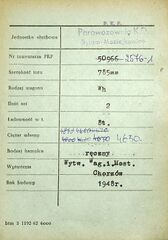 P.K.P.
Jednostka służbowa
Parowozownia K.D.
Nr inwentarza PKP 50966 2576-1
Szerokość toru 785mm
Rodzaj wagonu Wh
Ilość osi 2
Ładowność w t. 8t.
Ciężar własny 4650
Rodzaj hamulca ręczny
Wytwórnia Wytw. Wag. i Most.
Chorzów
Rok budowy 1948r.